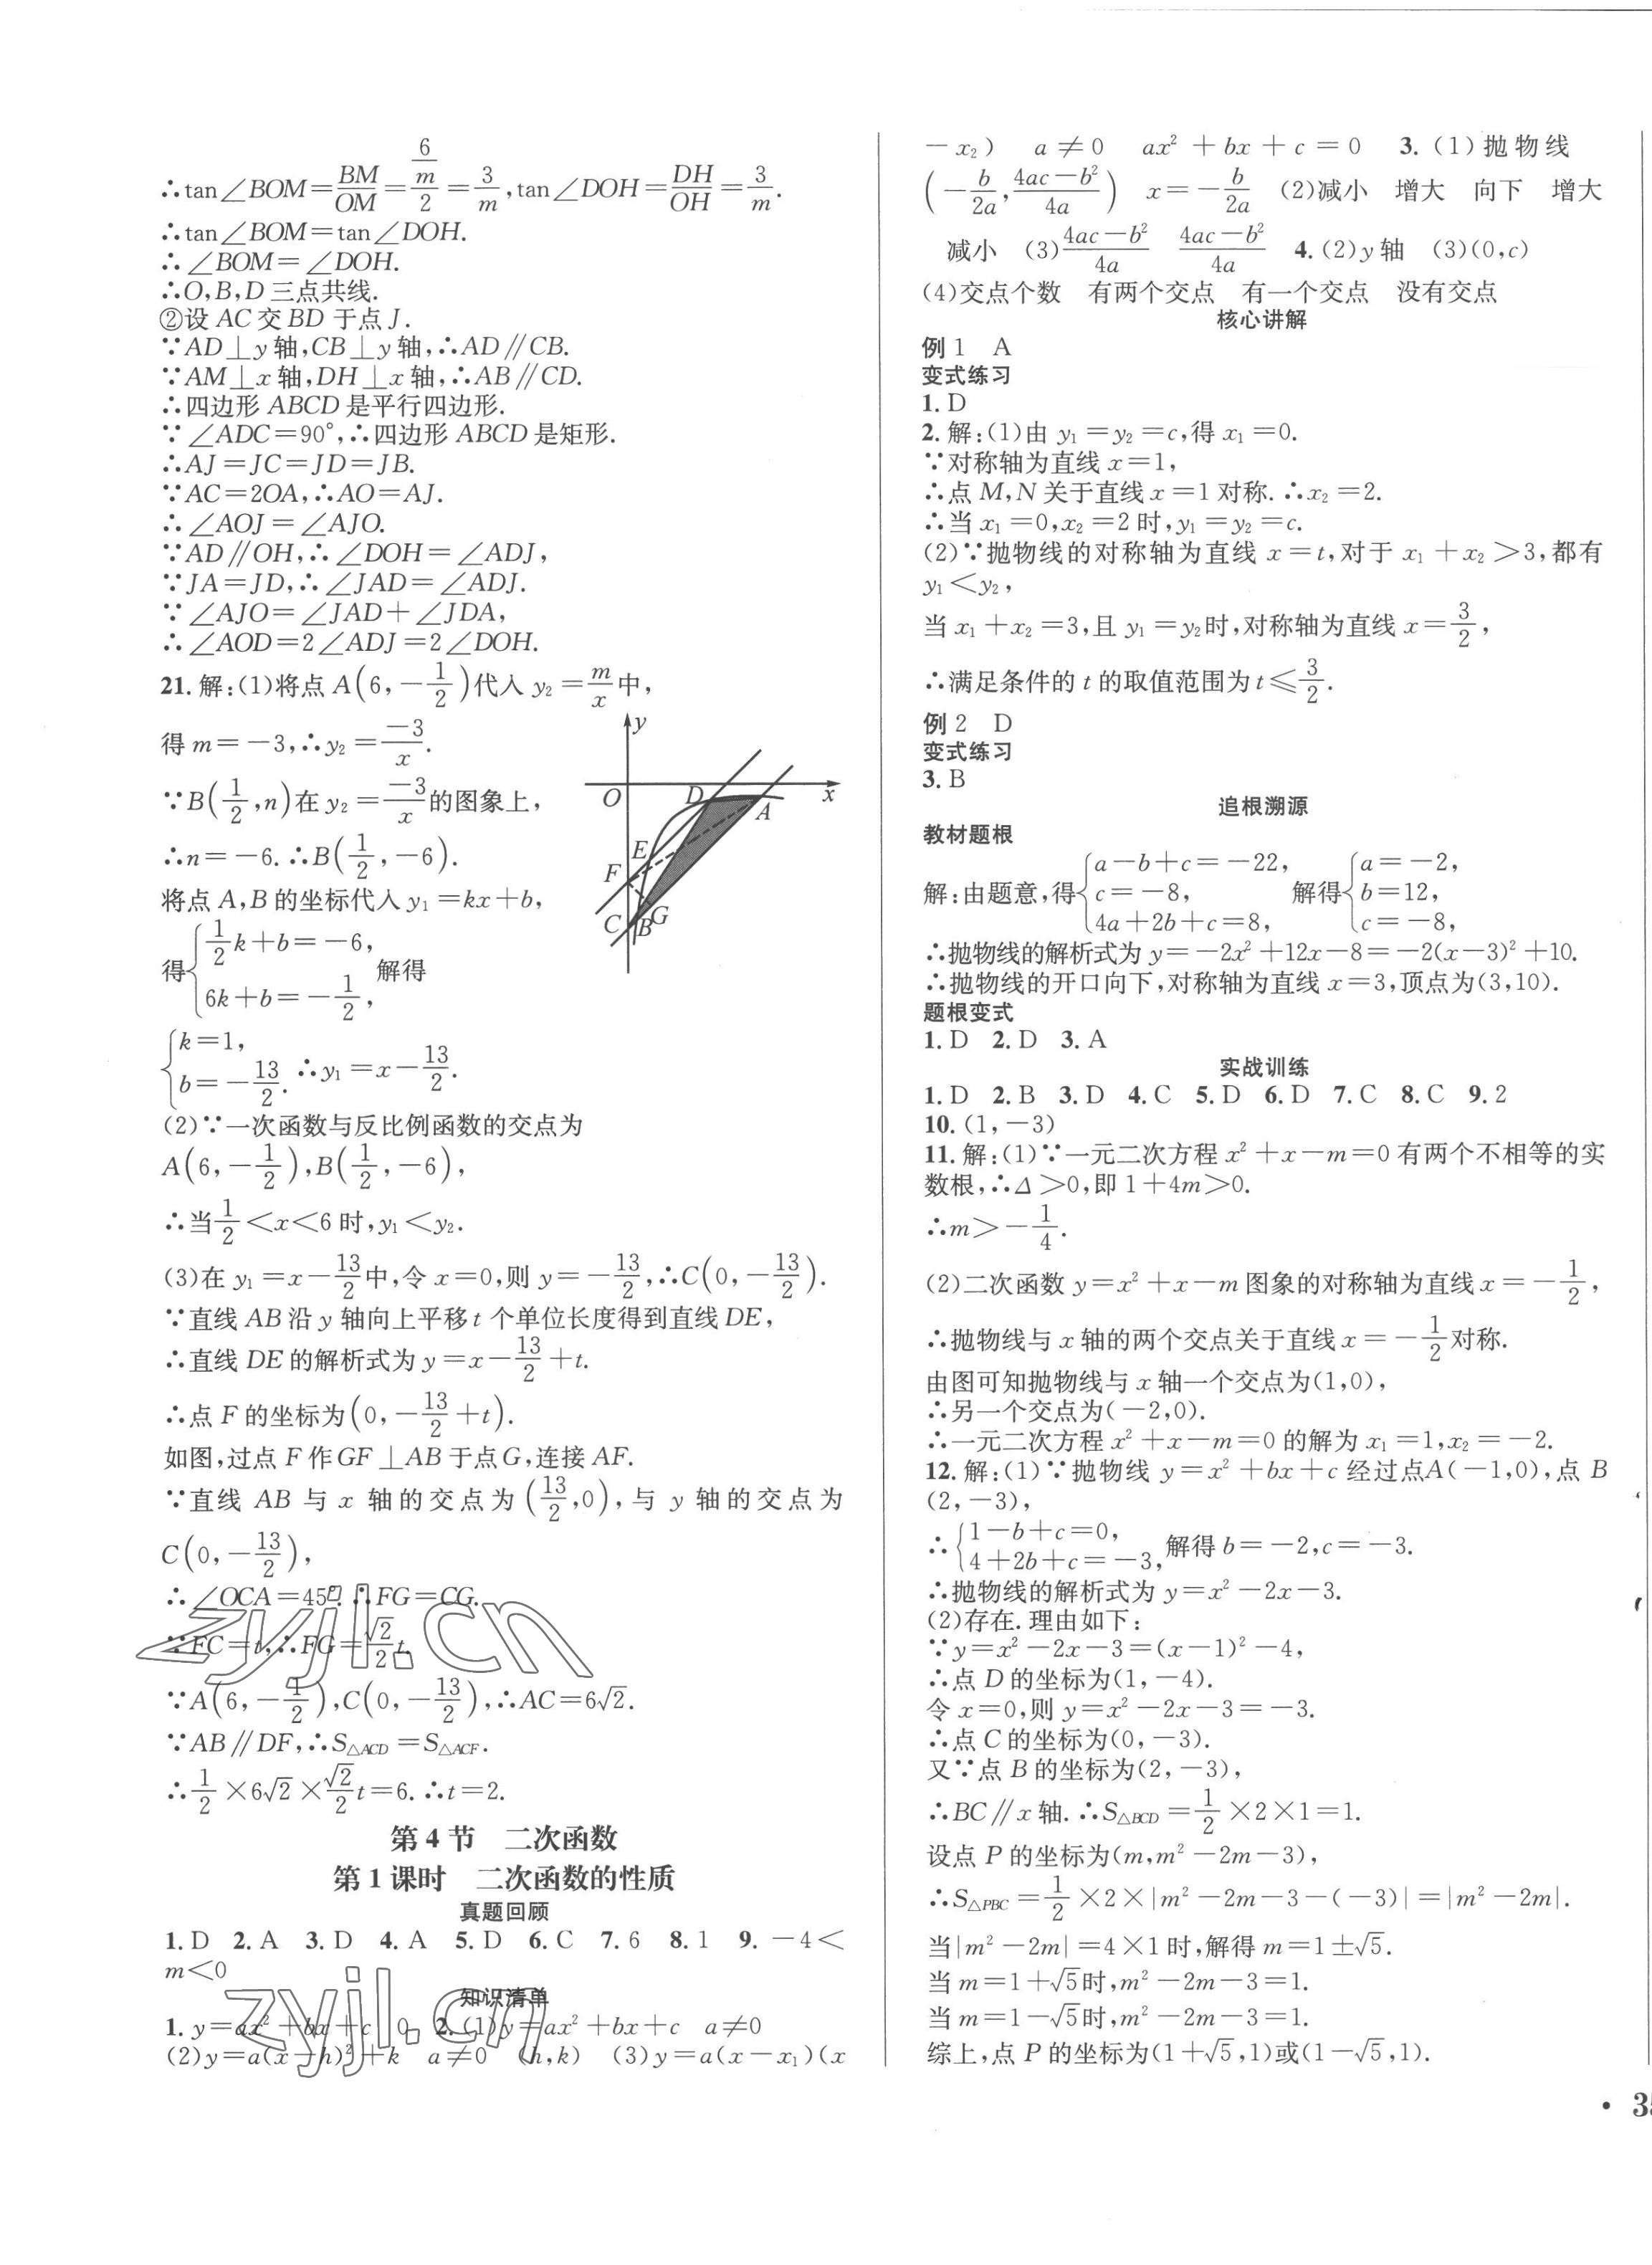 ∴tan∠BOM=BM/OM=(6/m)/2=3/m,tan∠DOH=DH/OH=3/m.
∴tan∠BOM=tan∠DOH.
∴∠BOM=∠DOH.
∴O,B,D三点共线.
②设AC交BD于点J.
∵AD⊥y轴,CB⊥y轴,∴AD∥CB.
∵AM⊥x轴,DH⊥x轴,∴AB∥CD.
∴四边形ABCD是平行四边形.
∵∠ADC=90°,∴四边形ABCD是矩形.
∴AJ=JC=JD=JB.
∵AC=2OA,∴AO=AJ.
∴∠AOJ=∠AJO.
∵AD∥OH,∴∠DOH=∠ADJ,
∵JA=JD,∴∠JAD=∠ADJ.
∵∠AJO=∠JAD+∠JDA,
∴∠AOD=2∠ADJ=2∠DOH.
21.解:(1)将点A(6,-1/2)代入y₂=m/x中,
得m=-3,∴y₂=-3/x.
∵B(1/2,n)在y₂=-3/x的图象上,
∴n=-6.∴B(1/2,-6).
将点A,B的坐标代入y₁=kx+b,
得{1/2k+b=-6,
6k+b=-1/2, 解得
{k=1,
b=-13/2. ∴y₁=x-13/2.
y
O D x
A
E
F
C B G
(2)∵一次函数与反比例函数的交点为
A(6,-1/2),B(1/2,-6),
∴当1/2<x<6时,y₁<y₂.
(3)在y₁=x-13/2中,令x=0,则y=-13/2,∴C(0,-13/2).
∵直线AB沿y轴向上平移t个单位长度得到直线DE,
∴直线DE的解析式为y=x-13/2+t.
∴点F的坐标为(0,-13/2+t).
如图,过点F作GF⊥AB于点G,连接AF.
∵直线AB与x轴的交点为(13/2,0),与y轴的交点为
C(0,-13/2),
∴∠OCA=45°.∴FG=CG.
∵FC=t,∴FG=√2/2t.
∵A(6,-1/2),C(0,-13/2),∴AC=6√2.
∵AB∥DF,∴S△ACD=S△ACF.
∴1/2×6√2×√2/2t=6.∴t=2.
第4节 二次函数
第1课时 二次函数的性质
真题回顾
1.D 2.A 3.D 4.A 5.D 6.C 7.6 8.1 9.-4<
m<0
知识清单
1.y=ax²+bx+c 0 2.(1)y=ax²+bx+c a≠0
(2)y=a(x-h)²+k a≠0 (h,k) (3)y=a(x-x₁)(x
zyjl.cn
zyjl.cn
-x₂) a≠0 ax²+bx+c=0 3.(1)抛物线
(-b/2a,(4ac-b²)/4a) x=-b/2a (2)减小 增大 向下 增大
减小 (3)(4ac-b²)/4a (4ac-b²)/4a 4.(2)y轴 (3)(0,c)
(4)交点个数 有两个交点 有一个交点 没有交点
核心讲解
例1 A
变式练习
1.D
2.解:(1)由y₁=y₂=c,得x₁=0.
∵对称轴为直线x=1,
∴点M,N关于直线x=1对称.∴x₂=2.
∴当x₁=0,x₂=2时,y₁=y₂=c.
(2)∵抛物线的对称轴为直线x=t,对于x₁+x₂>3,都有
y₁<y₂,
当x₁+x₂=3,且y₁=y₂时,对称轴为直线x=3/2,
∴满足条件的t的取值范围为t≤3/2.
例2 D
变式练习
3.B
追根溯源
教材题根
解:由题意,得{a-b+c=-22,
c=-8,
4a+2b+c=8, 解得{a=-2,
b=12,
c=-8,
∴抛物线的解析式为y=-2x²+12x-8=-2(x-3)²+10.
∴抛物线的开口向下,对称轴为直线x=3,顶点为(3,10).
题根变式
1.D 2.D 3.A
实战训练
1.D 2.B 3.D 4.C 5.D 6.D 7.C 8.C 9.2
10.(1,-3)
11.解:(1)∵一元二次方程x²+x-m=0有两个不相等的实
数根,∴Δ>0,即1+4m>0.
∴m>-1/4.
(2)二次函数y=x²+x-m图象的对称轴为直线x=-1/2,
∴抛物线与x轴的两个交点关于直线x=-1/2对称.
由图可知抛物线与x轴一个交点为(1,0),
∴另一个交点为(-2,0).
∴一元二次方程x²+x-m=0的解为x₁=1,x₂=-2.
12.解:(1)∵抛物线y=x²+bx+c经过点A(-1,0),点B
(2,-3),
∴{1-b+c=0,
4+2b+c=-3, 解得b=-2,c=-3.
∴抛物线的解析式为y=x²-2x-3.
(2)存在.理由如下:
∵y=x²-2x-3=(x-1)²-4,
∴点D的坐标为(1,-4).
令x=0,则y=x²-2x-3=-3.
∴点C的坐标为(0,-3).
又∵点B的坐标为(2,-3),
∴BC∥x轴.∴S△BCD=1/2×2×1=1.
设点P的坐标为(m,m²-2m-3),
∴S△PBC=1/2×2×|m²-2m-3-(-3)|=|m²-2m|.
当|m²-2m|=4×1时,解得m=1±√5.
当m=1+√5时,m²-2m-3=1.
当m=1-√5时,m²-2m-3=1.
综上,点P的坐标为(1+√5,1)或(1-√5,1).